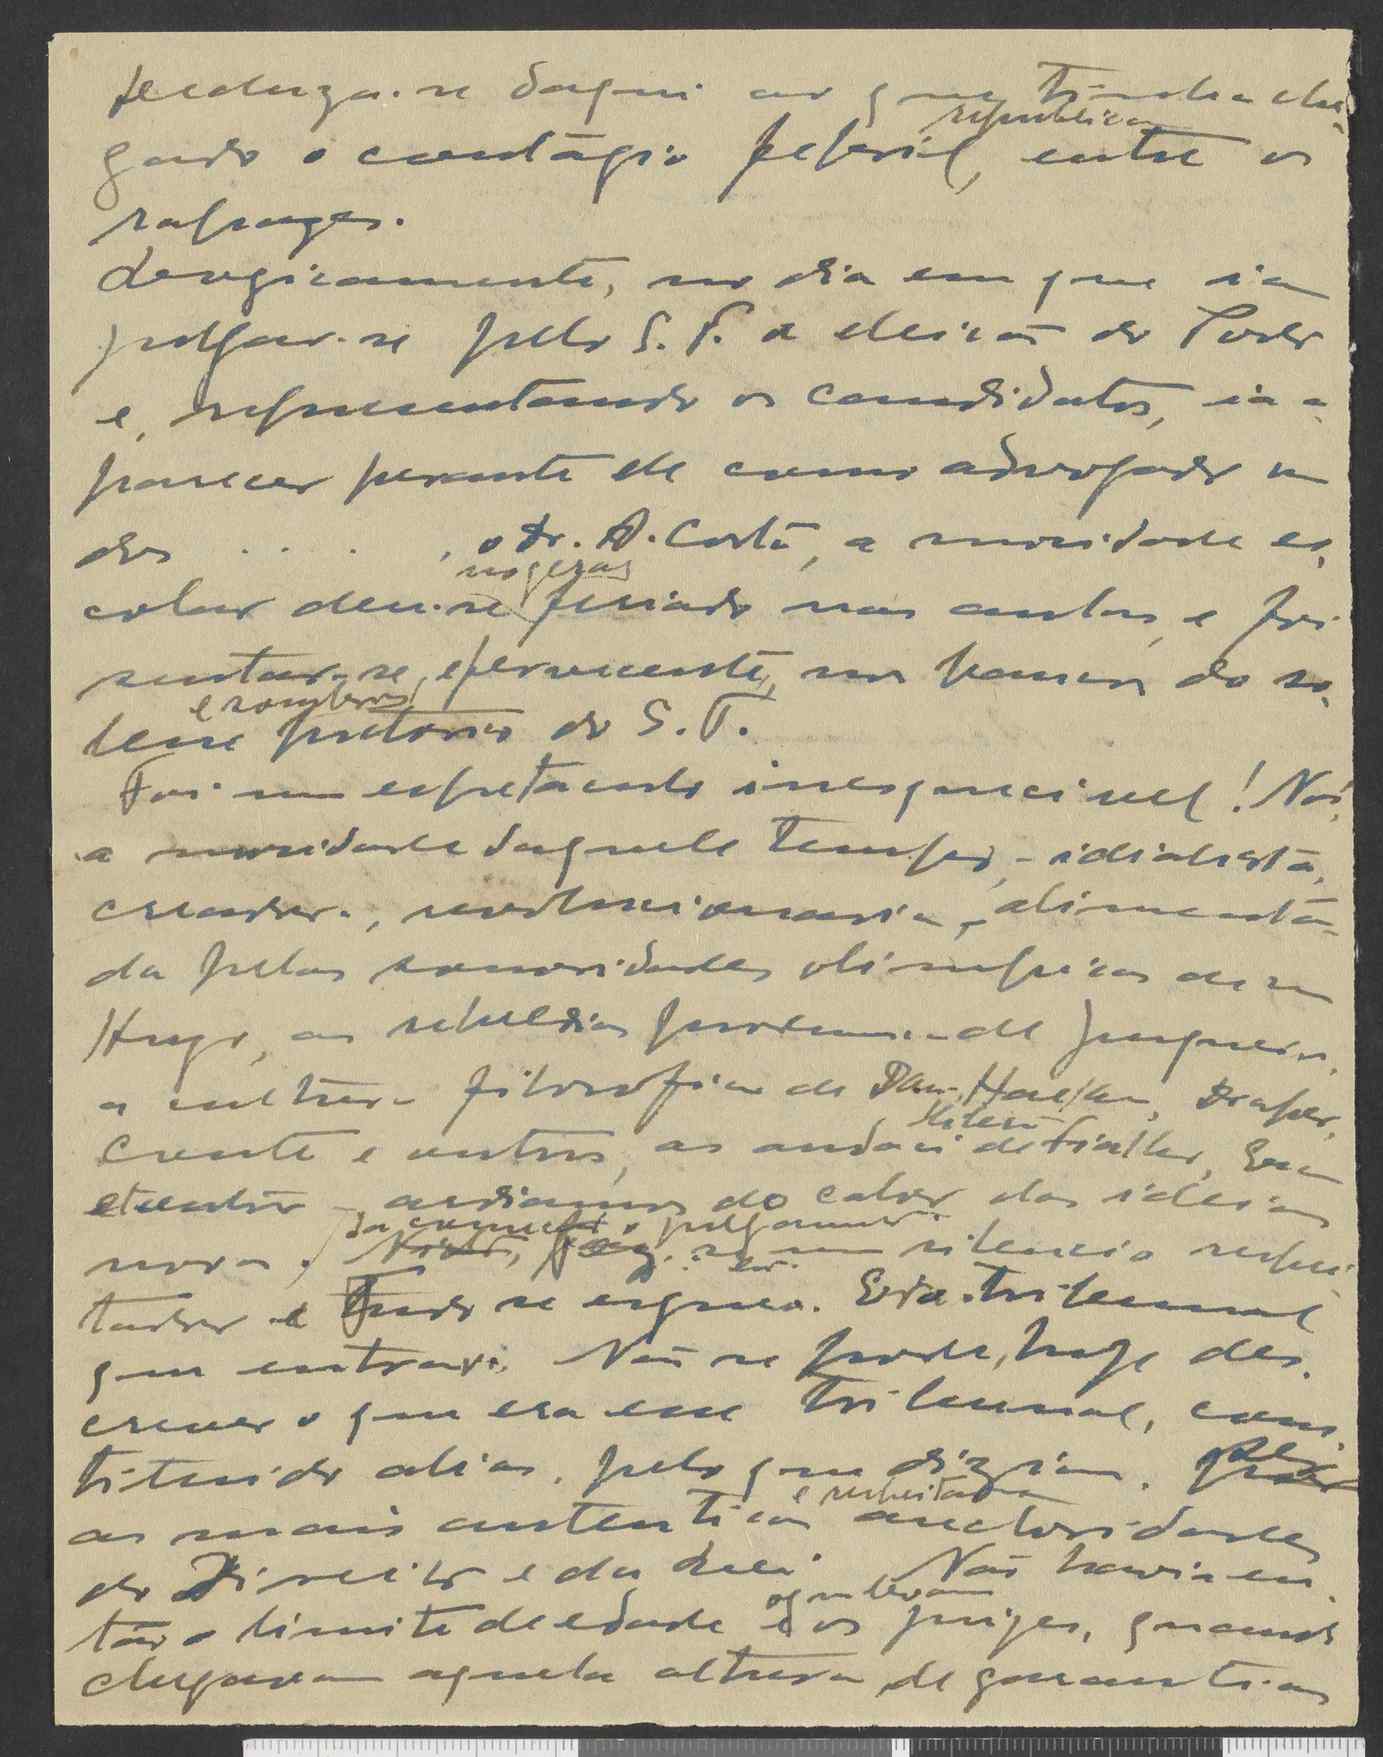 deduza-se daqui ao que tinha che-
gado o contágio febril, republicano entre os
rapazes.
Logicamente, no dia em que ia
julgar-se pelo S. T. a eleição do Porto
e, representando os candidatos, ia a-
parecer perante ele como advogado um
dos . . . . , o Dr. A. Costa, a mocidade es-
colar deu-se feriado nas aulas, e foi
sentar-se, efervescente, nos bancos do so-
lene e pretorio do S. T.
Foi um espetaculo inesquecivel! Nós,
a mocidade daquele tempo, - idialista,
creadora, revolucionaria, alimenta-
da pelas sonoridades olimpicas de um
Hugo, as rebeldias de Junqueiro,
a cultura filosofica de Haeckel, Draper,
Comte e outros, as audacias de Fialho,
- ardiamos do calor das ideias
novas. silencio respei-
tador e tudo se ergueu. Era o tribunal
que entrava. Não se pode, hoje des-
crever o que era esse tribunal, cons-
tituido alias, pelo que diziam, pelas
as mais autenticas e respeitadas auctoridades
do Direito e da Lei. Não havia en-
tão o limite de edade e os juizes, quando
chegavam aquela altura de garantias